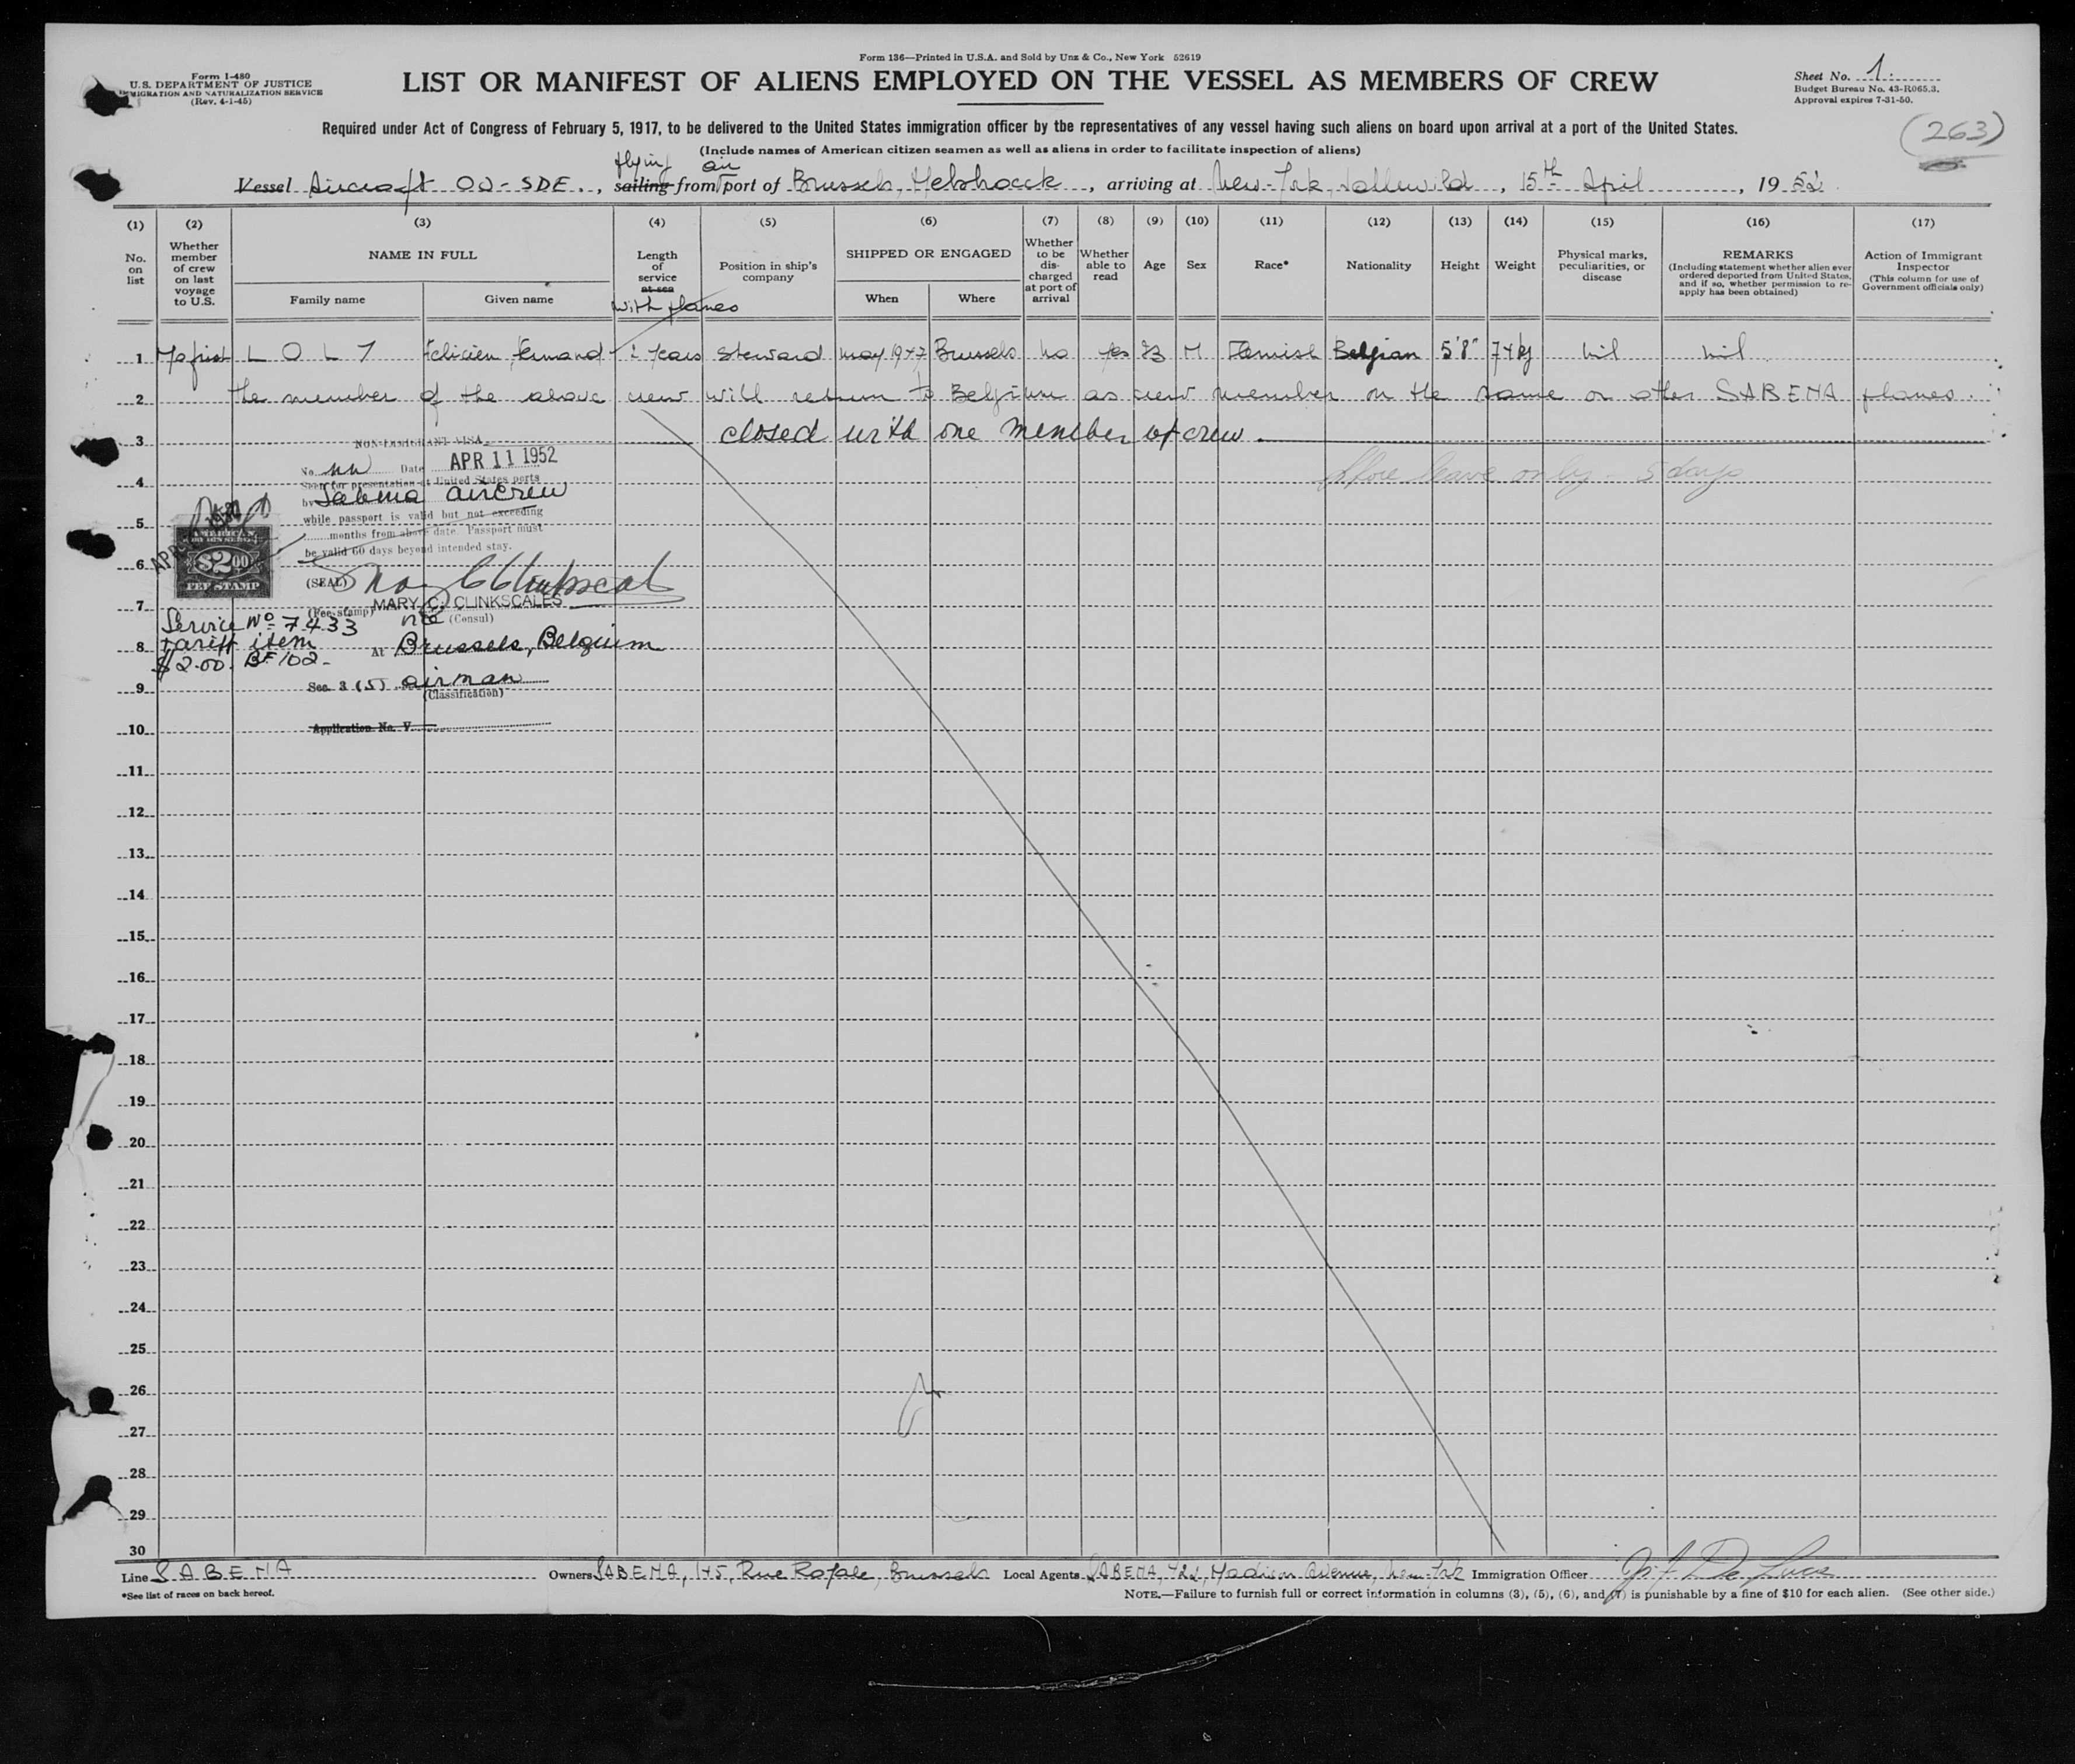 Form 136—Printed in U.S.A. and Sold by Unz & Co., New York 52619
Form I-480
U.S. DEPARTMENT OF JUSTICE
IMMIGRATION AND NATURALIZATION SERVICE
(Rev. 4-1-45)
LIST OR MANIFEST OF ALIENS EMPLOYED ON THE VESSEL AS MEMBERS OF CREW
Sheet No. 1.
Budget Bureau No. 43-R065.3.
Approval expires 7-31-50.
(263)
Required under Act of Congress of February 5, 1917, to be delivered to the United States immigration officer by the representatives of any vessel having such aliens on board upon arrival at a port of the United States.
(Include names of American citizen seamen as well as aliens in order to facilitate inspection of aliens)
flying air
Vessel Aircraft OO-SDE., sailing from port of Brussels, Melsbroeck, arriving at New-York, Idlewild, 15th April, 19 52
(1) (2) (3) (4) (5) (6) (7) (8) (9) (10) (11) (12) (13) (14) (15) (16) (17)
No. on list
Whether member of crew on last voyage to U.S.
NAME IN FULL
Family name
Given name
Length of service at sea
with planes
Position in ship's company
SHIPPED OR ENGAGED
When
Where
Whether to be discharged at port of arrival
Whether able to read
Age
Sex
Race*
Nationality
Height
Weight
Physical marks, peculiarities, or disease
REMARKS
(Including statement whether alien ever ordered deported from United States, and if so, whether permission to re-apply has been obtained)
Action of Immigrant Inspector
(This column for use of Government officials only)
1 L O L Y Félicien, Fernand years Steward may 1947 Brussels no yes M Flemish Belgian 5'8" 74 kg nil nil
2 the member of the above crew will return to Belgium as crew member on the same or other SABENA planes.
3 closed with one member of crew.
Shore leave only - 5 days
NON-IMMIGRANT VISA
No. Date APR 11 1952
Seen for presentation at United States ports
by Sabena aircrew
while passport is valid but not exceeding
months from above date. Passport must
be valid 60 days beyond intended stay.
(SEAL)
MARY C. CLINKSCALES
(Fee stamp) vice (Consul)
At Brussels, Belgium
Sec. 3 (5) airman
(Classification)
Application No. V
AMERICAN
FOREIGN SERVICE
$2.00
FEE STAMP
Service No 7433
Tariff item
$2.00. BF 102-
4
5
6
7
8
9
10
11
12
13
14
15
16
17
18
19
20
21
22
23
24
25
26
27
28
29
30
Line SABENA Owners SABENA, 145, Rue Royale, Brussels Local Agents SABENA, 422, Madison Avenue, New-York Immigration Officer
*See list of races on back hereof.
NOTE.—Failure to furnish full or correct information in columns (3), (5), (6), and (7) is punishable by a fine of $10 for each alien. (See other side.)